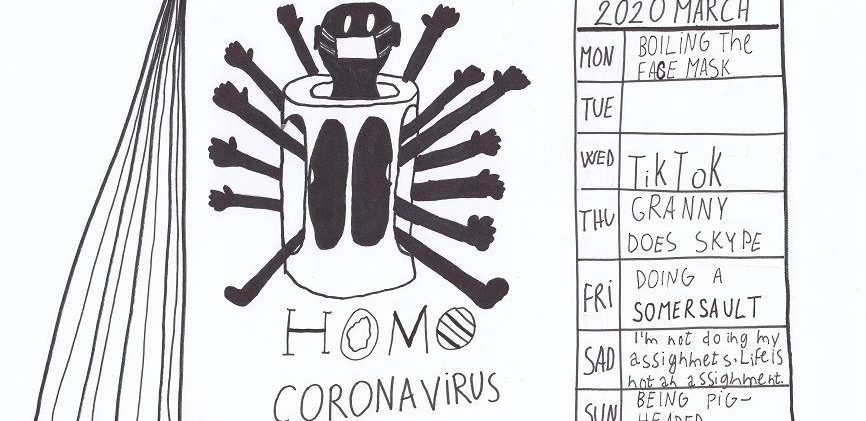 HOMO
CORONAVIRUS
2020 MARCH
MON
BOILING The
FACE MASK
TUE
WED
TikTok
THU
GRANNY
DOES SKYPE
FRI
DOING A
SOMERSAULT
SAD
I'm not doing my
assighmets. Life is
not an assighment.
SUN
BEING PIG-
HEADED